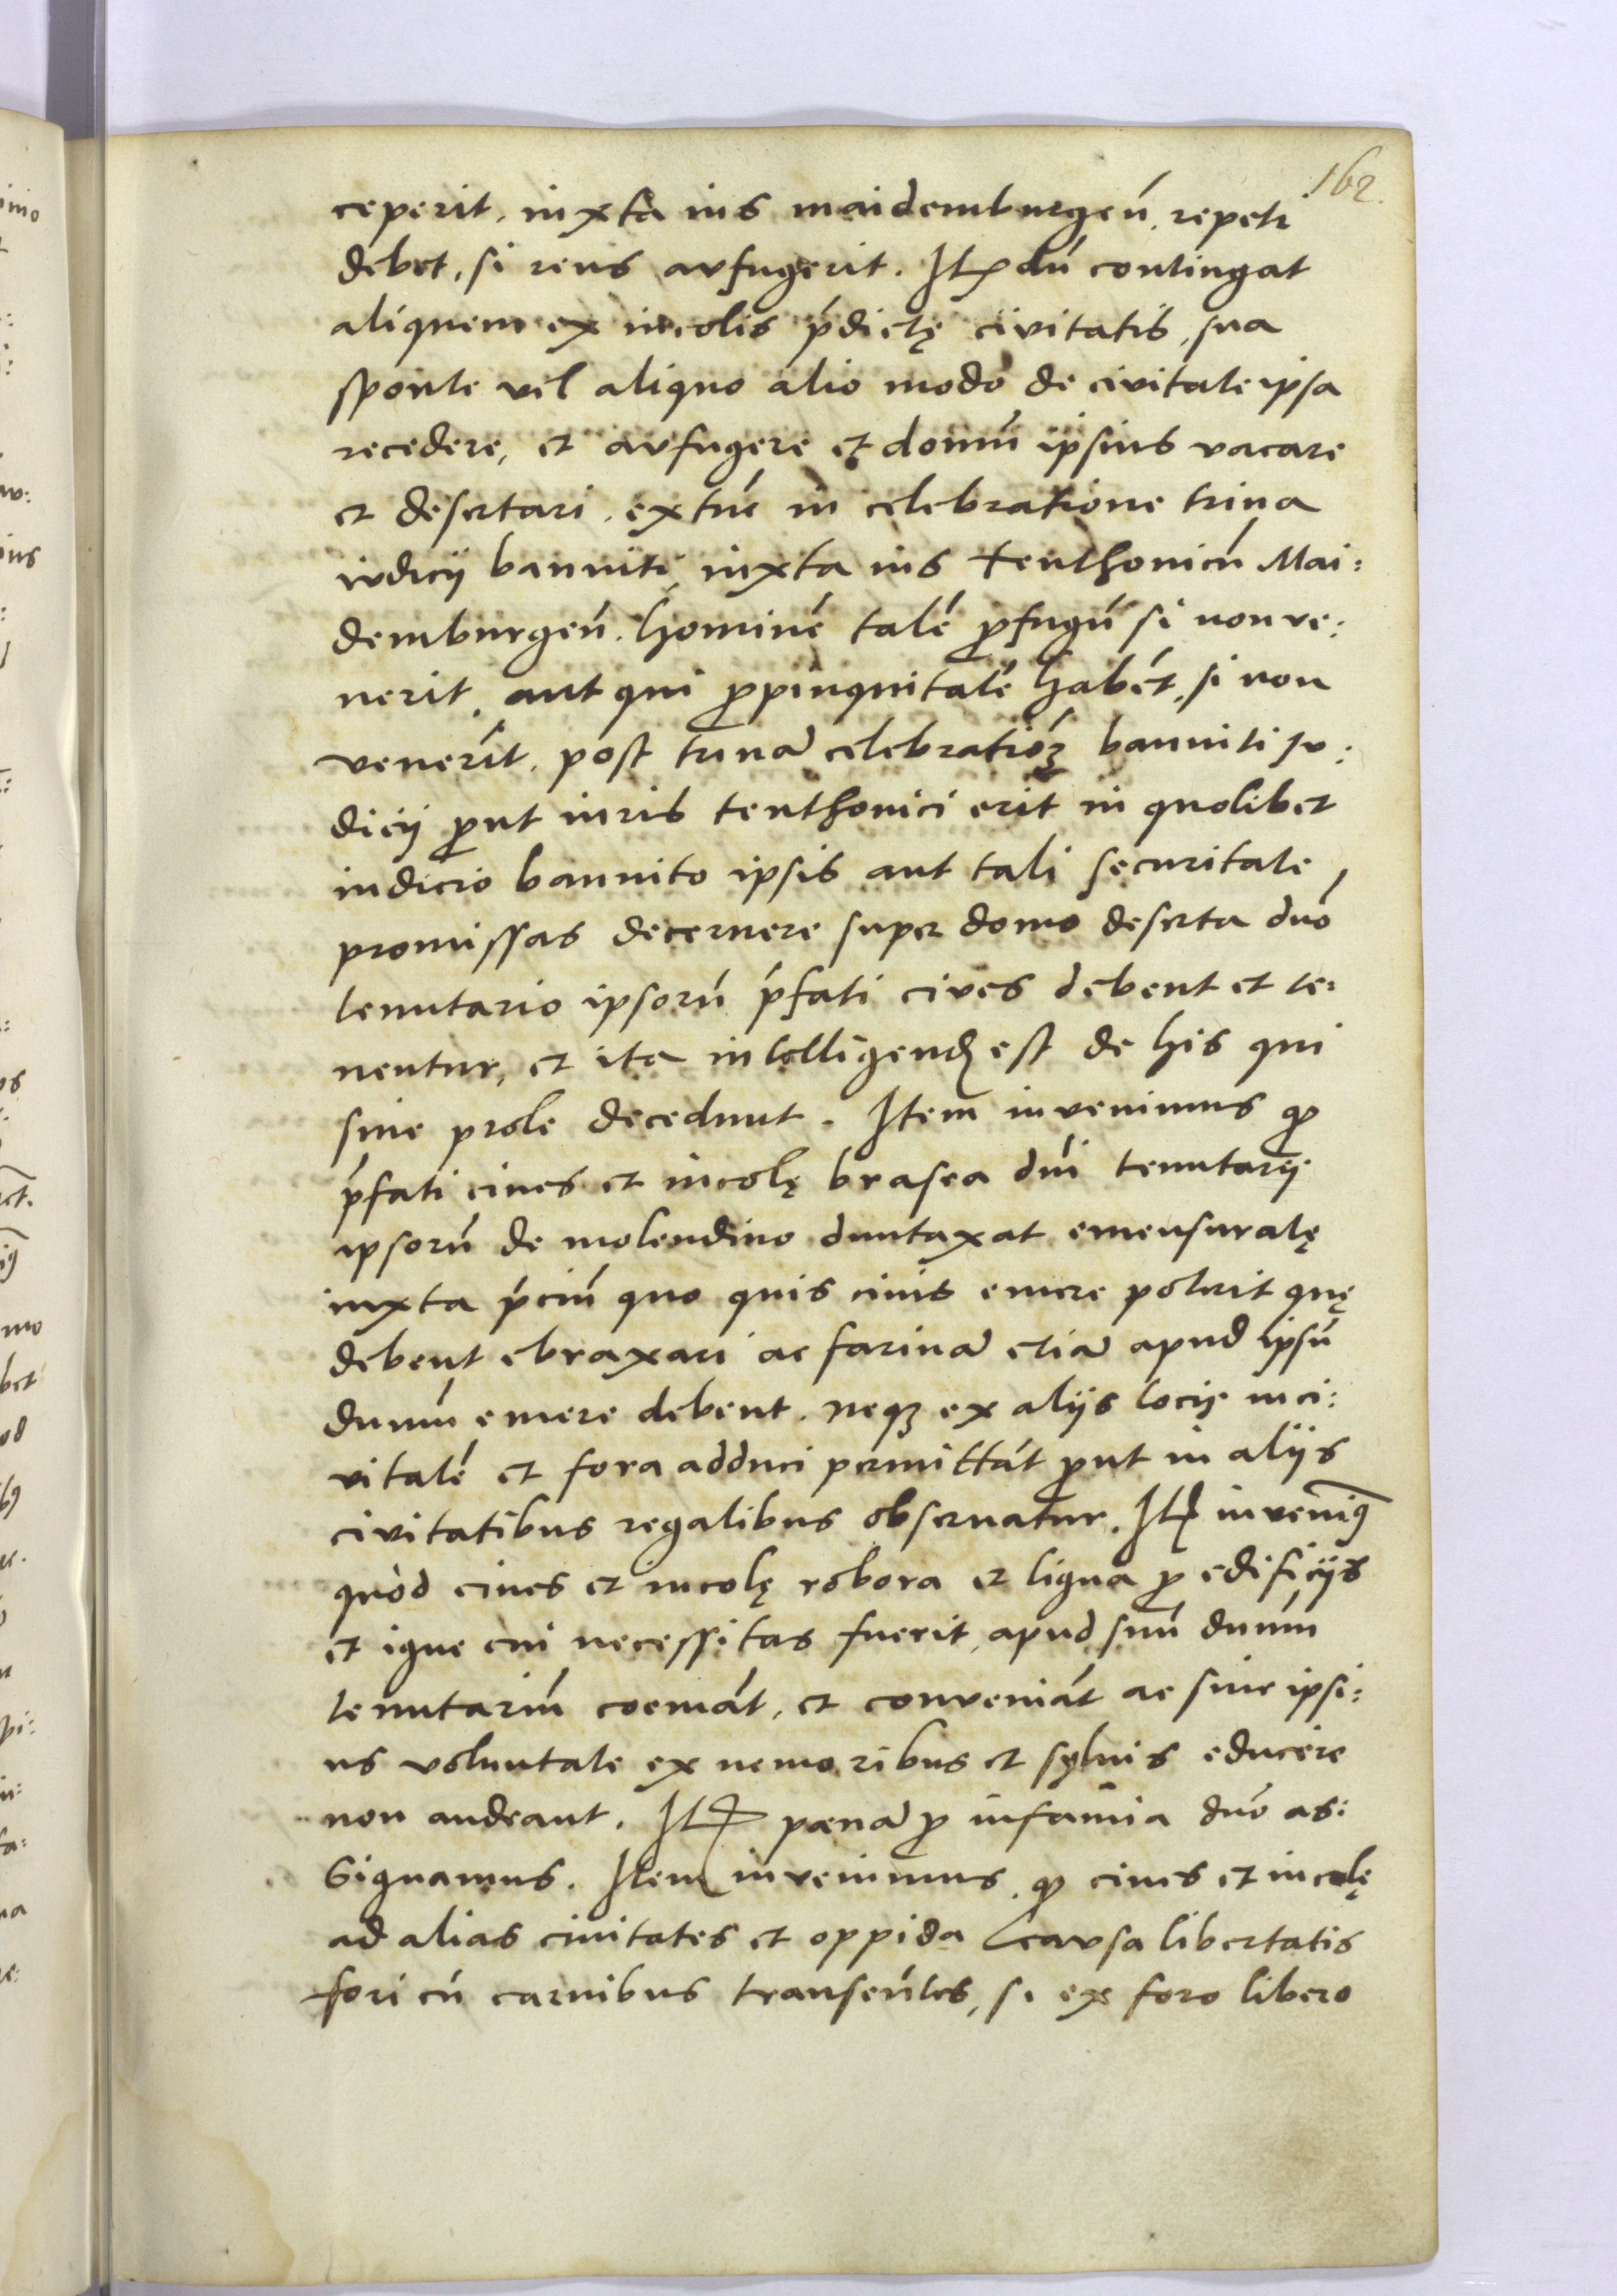 162.
ceperit, iuxta ius maidemburgeń, repeti
debet, si reus aufugerit. Itꝫ dū contingat
aliquem ex incolis p̄dictę civitatis, sua
sponte vel aliquo alio modo de civitate ipsa
recedere, et aufugere et domū ipsius vacare
et desertari, extūc in celebratione trina
iudicij banniti iuxta ius teuthonicū Mai:
demburgeń. hominē talē ꝓfugū si non ve:
nerit, aut qui ꝓpinquitatē habēt, si non
venerīt, post trinā celebratiōꝫ banniti Iu:
dicij ꝓut iuris teuthonici erit in quolibet
iudicio bannito ipsis aut tali securitate
promissas decernere super domo deserta dńo
tenutario ipsorū p̄fati cives debent et te:
nentur, et ita intelligenđ est de his qui
sine prole decedunt. Item invenimus ꝙ
p̄fati cives et incolę brasea dńi tenutarij
ipsorū de molendino duntaxat emensuratę
iuxta p̄ciū quo quis civis emere poterit quę
debent ebraxari ac farinā etiā apud ipsū
dnnm̄ emere debent, neqꝫ ex alijs locis in ci:
vitatē et fora adduci permittāt ꝓut in alijs
civitatibus regalibus observatur. Itꝫ invenimꝰ
quòd cives et incolę robora et ligna ꝓ edificijs
et igne cui necessitas fuerit, apud suū dnnm̄
tenutariū coemāt, et conveniāt ac sine ipsi:
us voluntate ex nemoribus et sylvis educere
non audeant. Itꝫ pœnā ꝓ infamia dńo as:
signamus. Item invenimus, ꝙ cives et incolę
ad alias civitates et oppida causa libertatis
fori cū carnibus transeūtes, si ex foro libero